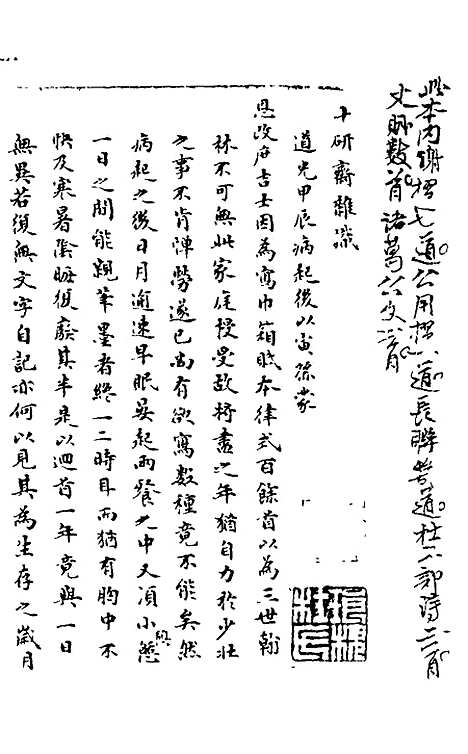 此本內謝摺七道公用摺八道長聯
文
數首諸葛
十研齋雜識
道光甲辰病起後以寅孫蒙
恩改庶吉士因為寫巾箱賦本律式百餘首以為三世翰
林不可無此家庭授受致將盡之年猶自力於少壯
之事不肯陣勞遂已尚有欲寫數種竟不能矣然
病起之後日月逾速早眠晏起兩餐之中又須小憩
一日之間能親筆墨者終一二時耳而猶有胸中不
快及寒暑陰晦復廢其半是以迴首一年竟與一日
無異若復無文字自記亦何以見其為生存之歲月